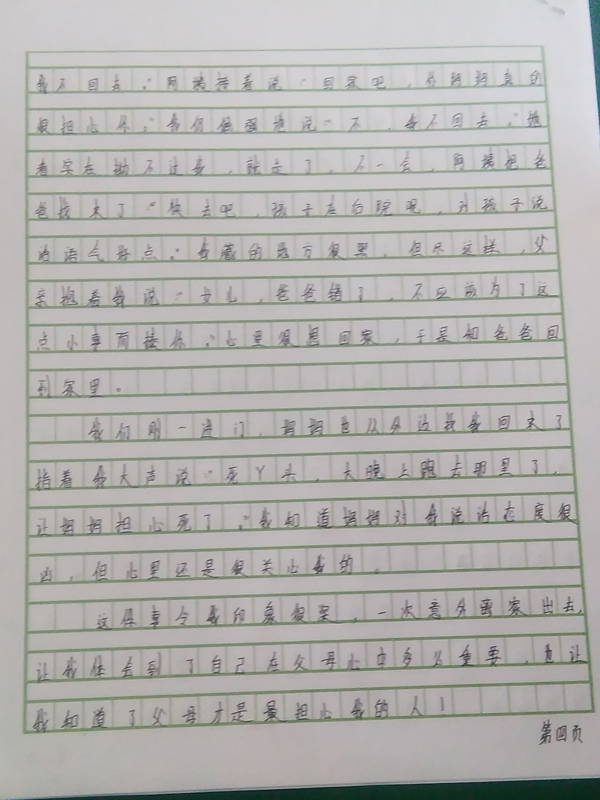 我不回去。”阿姨接着说“回家吧，你妈妈真的
很担心你。”我仍倔强地说“不，我不回去。”她
看实在拗不过我，就走了，不一会，阿姨把爸
爸找来了“快去吧，孩子在后院呢，对孩子说
话语气好点。”我藏的地方很黑，但不这样，父
亲抱着我说“女儿，爸爸错了，不应该为了这
点小事而揍你。”心里很想回家，于是和爸爸回
到家里。
我们刚一进门，妈妈也从外边找我回来了
指着我大声说“死丫头，大晚上跑去那里了，
让妈妈担心死了。”我知道妈妈对我说话态度很
凶，但心里还是很关心我的。
这件事令我印象很深，一次意外离家出去，
让我体会到了自己在父母心中多么重要，也让
我知道了父母才是最担心我的人！
第四页